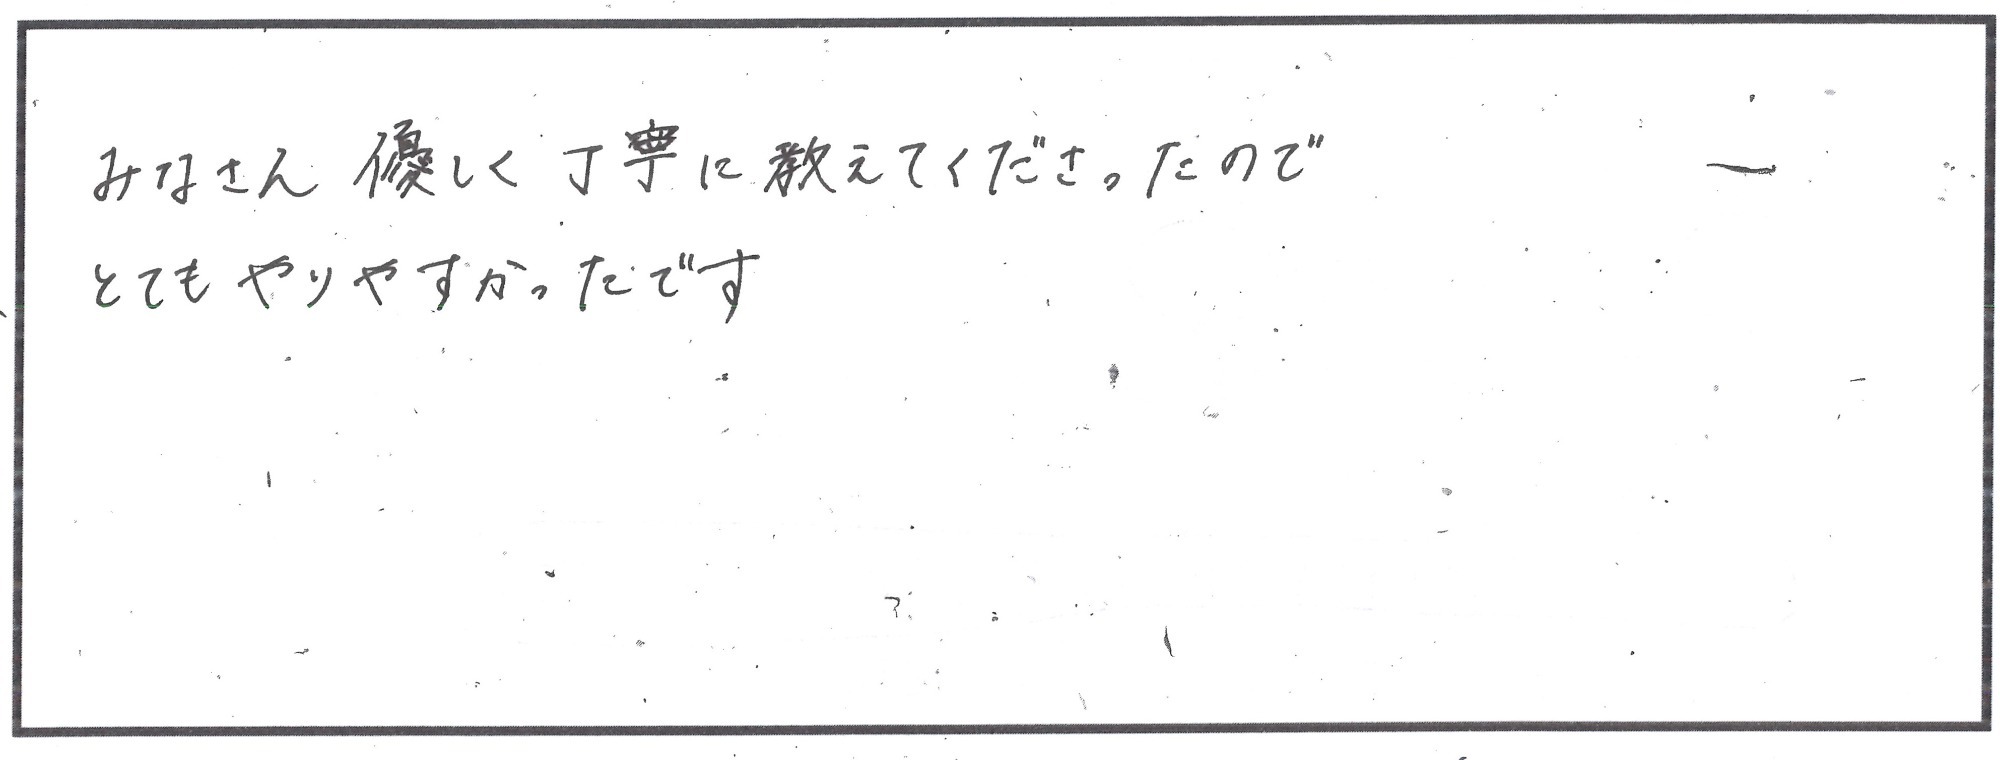 みなさん 優しく 丁寧に教えてくださったので
とてもやりやすかったです